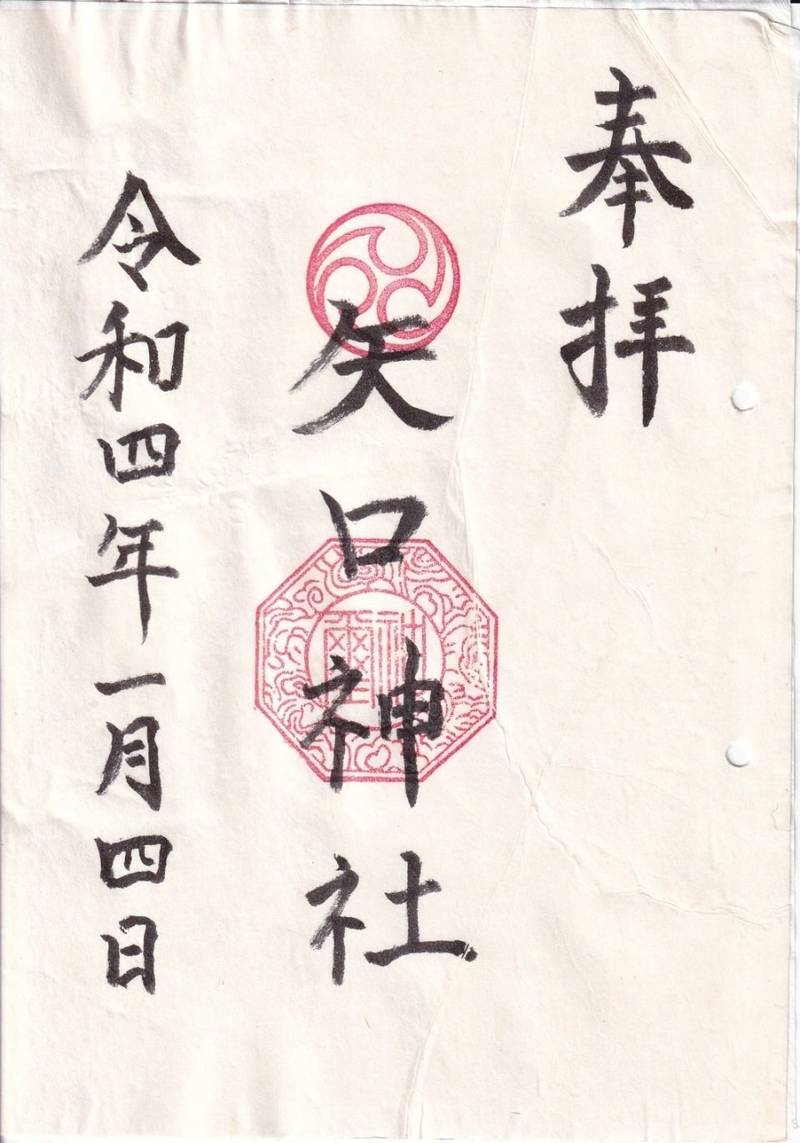 奉拝
矢口神社
令和四年一月四日